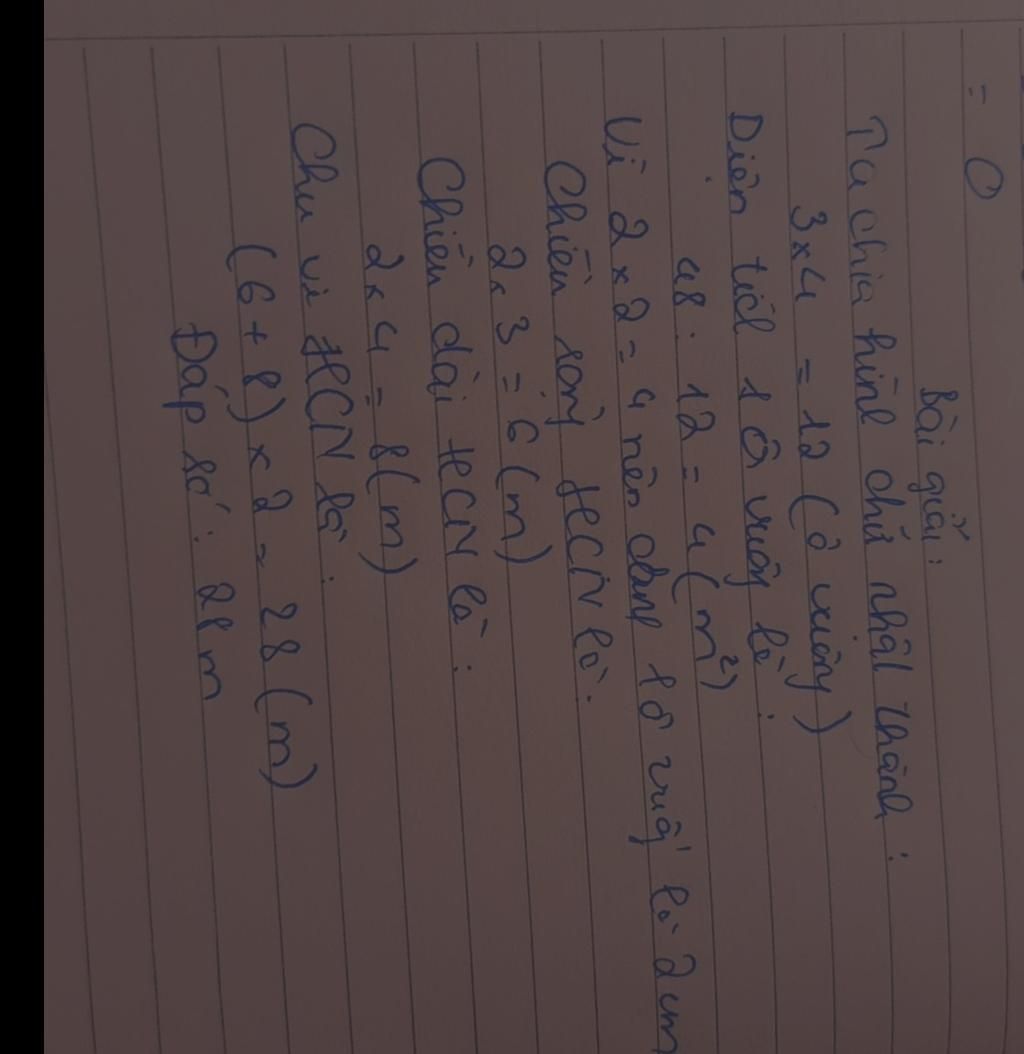 = 0
Bài giải:
Ta chia hình chữ nhật thành :
3 x 4 = 12 ( ô vuông )
Diện tích 1 ô vuông là :
48 : 12 = 4 ( m²)
Vì 2 x 2 = 4 nên cạnh 1 ô vuông là 2 cm
Chiều rộng HCN là :
2 x 3 = 6 ( m )
Chiều dài HCN là :
2 x 4 = 8 ( m )
Chu vi HCN là :
( 6 + 8 ) x 2 = 28 ( m )
Đáp số : 28 m